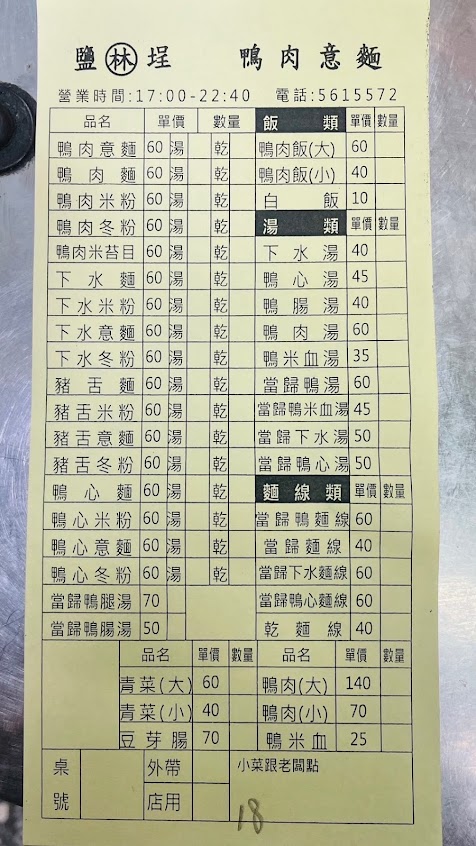 鹽林埕 鴨肉意麵
營業時間:17:00-22:40 電話:5615572
品名 單價 數量 飯類 單價 數量
鴨肉意麵 60 湯 乾 鴨肉飯(大) 60
鴨肉麵 60 湯 乾 鴨肉飯(小) 40
鴨肉米粉 60 湯 乾 白飯 10
鴨肉冬粉 60 湯 乾 湯類 單價 數量
鴨肉米苔目 60 湯 乾 下水湯 40
下水麵 60 湯 乾 鴨心湯 45
下水米粉 60 湯 乾 鴨腸湯 40
下水意麵 60 湯 乾 鴨肉湯 60
下水冬粉 60 湯 乾 鴨米血湯 35
豬舌麵 60 湯 乾 當歸鴨湯 60
豬舌米粉 60 湯 乾 當歸鴨米血湯 45
豬舌意麵 60 湯 乾 當歸下水湯 50
豬舌冬粉 60 湯 乾 當歸鴨心湯 50
鴨心麵 60 湯 乾 麵線類 單價 數量
鴨心米粉 60 湯 乾 當歸鴨麵線 60
鴨心意麵 60 湯 乾 當歸麵線 40
鴨心冬粉 60 湯 乾 當歸下水麵線 60
當歸鴨腿湯 70 當歸鴨心麵線 60
當歸鴨腸湯 50 乾麵線 40
品名 單價 數量 品名 單價 數量
青菜(大) 60 鴨肉(大) 140
青菜(小) 40 鴨肉(小) 70
豆芽腸 70 鴨米血 25
桌號 外帶 小菜跟老闆點
店用
18